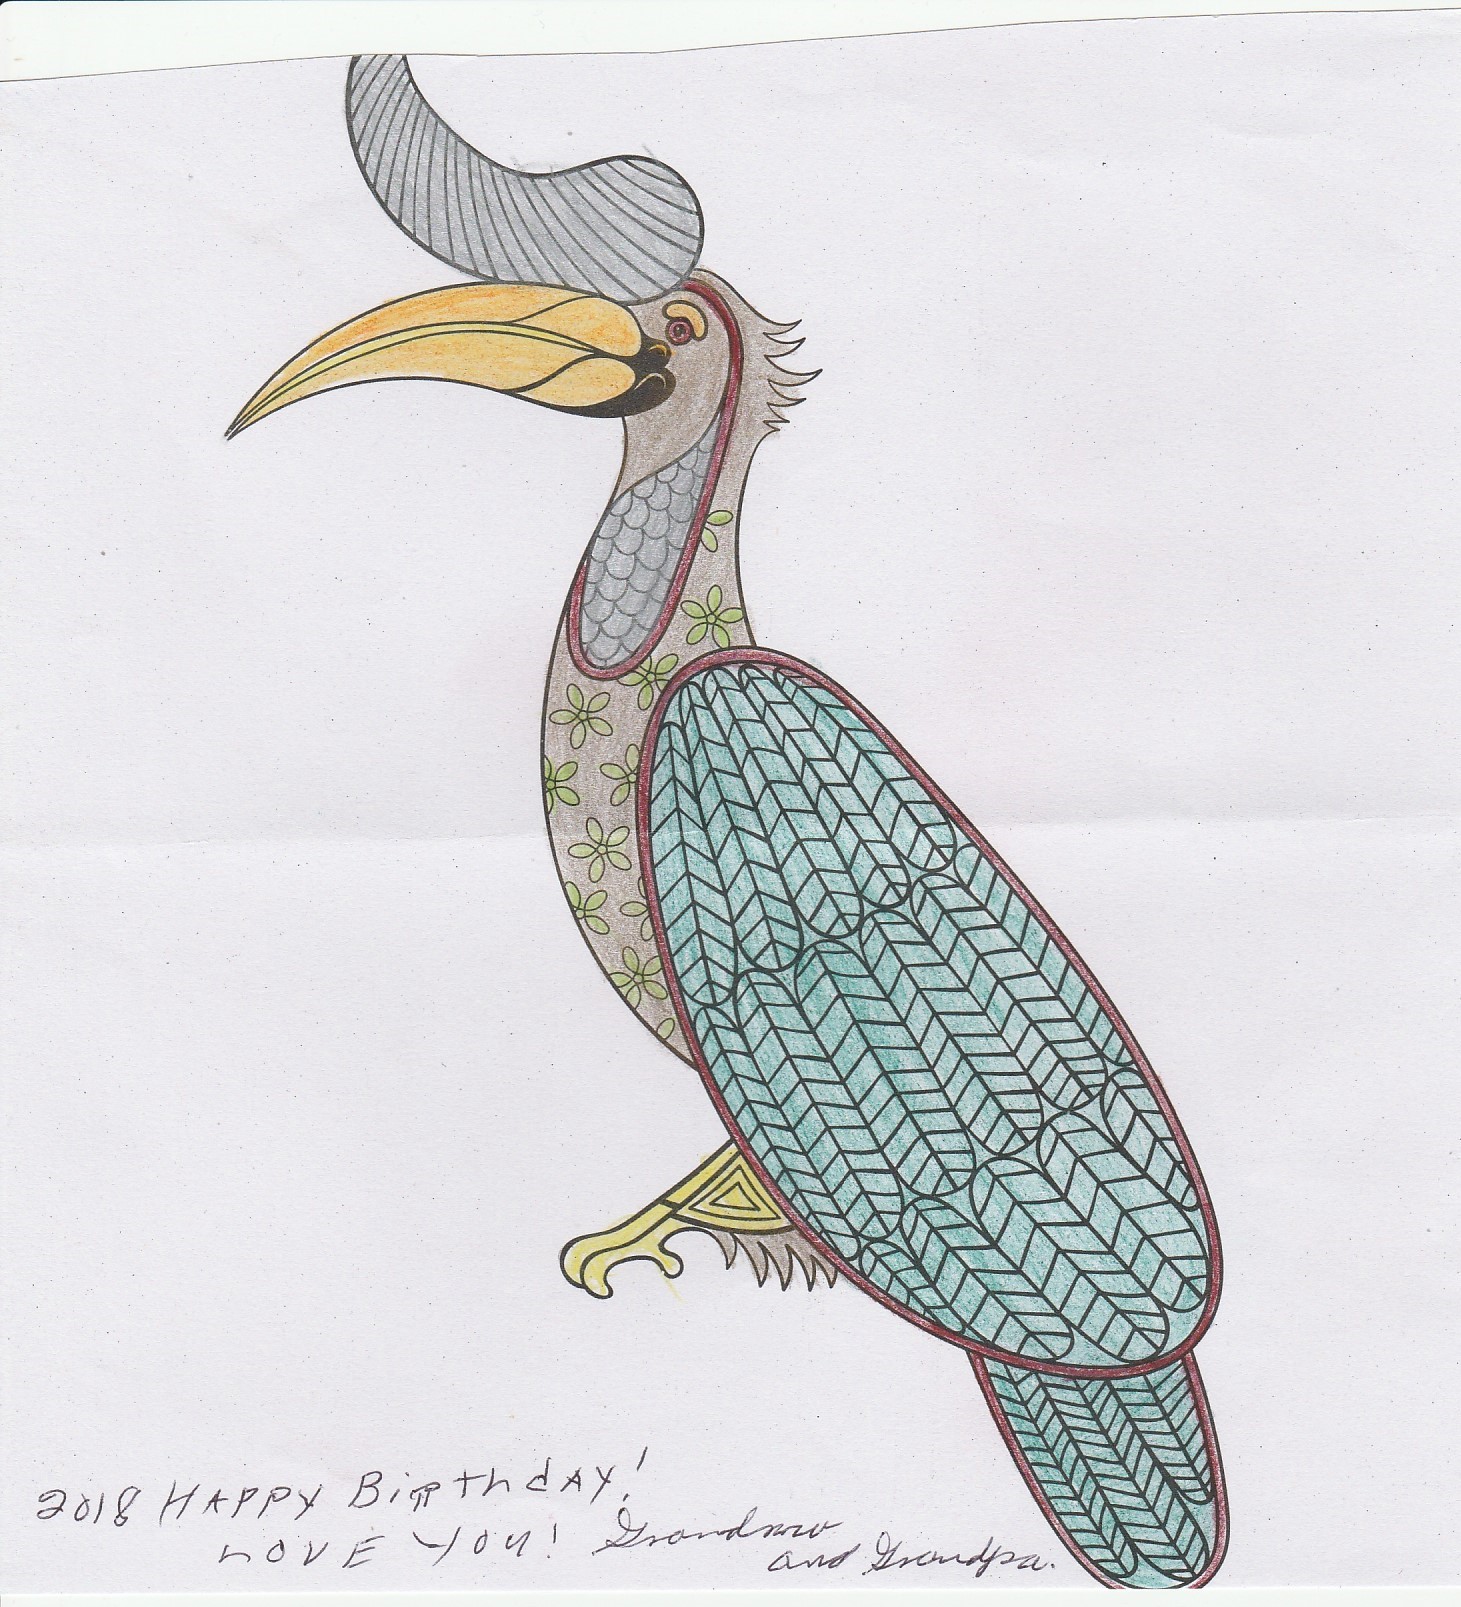 2018 HAPPY BirthdAY!
LOVE YOU! Grandmo
and Grandpa.